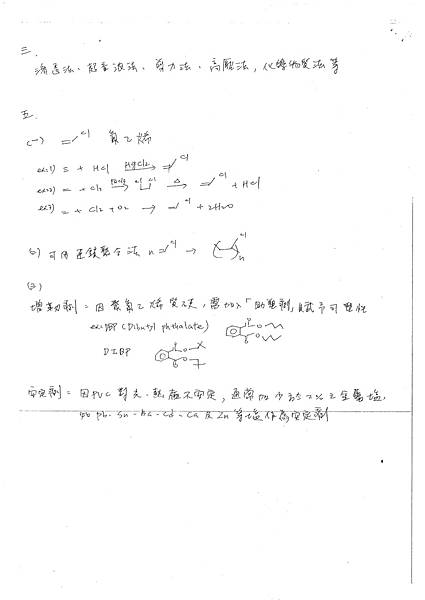 三.
滲透法、超音波法、剪力法、高壓法,化學物質法等
五.
(一) Cl 氯乙烯
ex1) ≡ + HCl HgCl2→ Cl
ex2) = + Cl2 FeCl3→ Cl Cl △→ Cl + HCl
ex3) = + Cl2 + O2 → Cl + 2H2O
(二) 可用 連鎖聚合法 n Cl → Cl n
(三)
增塑劑 = 因聚氯乙烯質硬,需加入「助塑劑」賦予可塑性
ex: DBP (Dibutyl phthalate)
DIBP
安定劑 = 因PVC對光、熱 不安定,通常加 2% 之金屬鹽,
如 Pb、Sn、Ba、Cd、Ca 及 Zn 等鹽作為安定劑